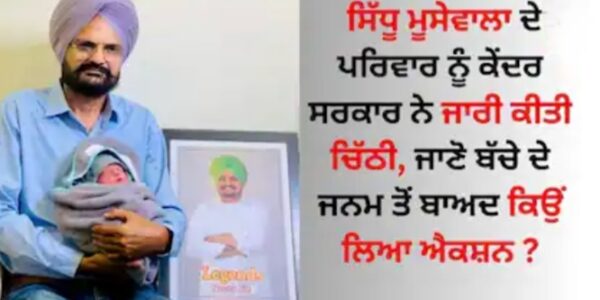 ਸਿੱਧੂ ਮੂਸੇਵਾਲਾ ਦੇ
ਪਰਿਵਾਰ ਨੂੰ ਕੇਂਦਰ
ਸਰਕਾਰ ਨੇ ਜਾਰੀ ਕੀਤੀ
ਚਿੱਠੀ, ਜਾਣੋ ਬੱਚੇ ਦੇ
ਜਨਮ ਤੋਂ ਬਾਅਦ ਕਿਉਂ
ਲਿਆ ਐਕਸ਼ਨ ?
Legends